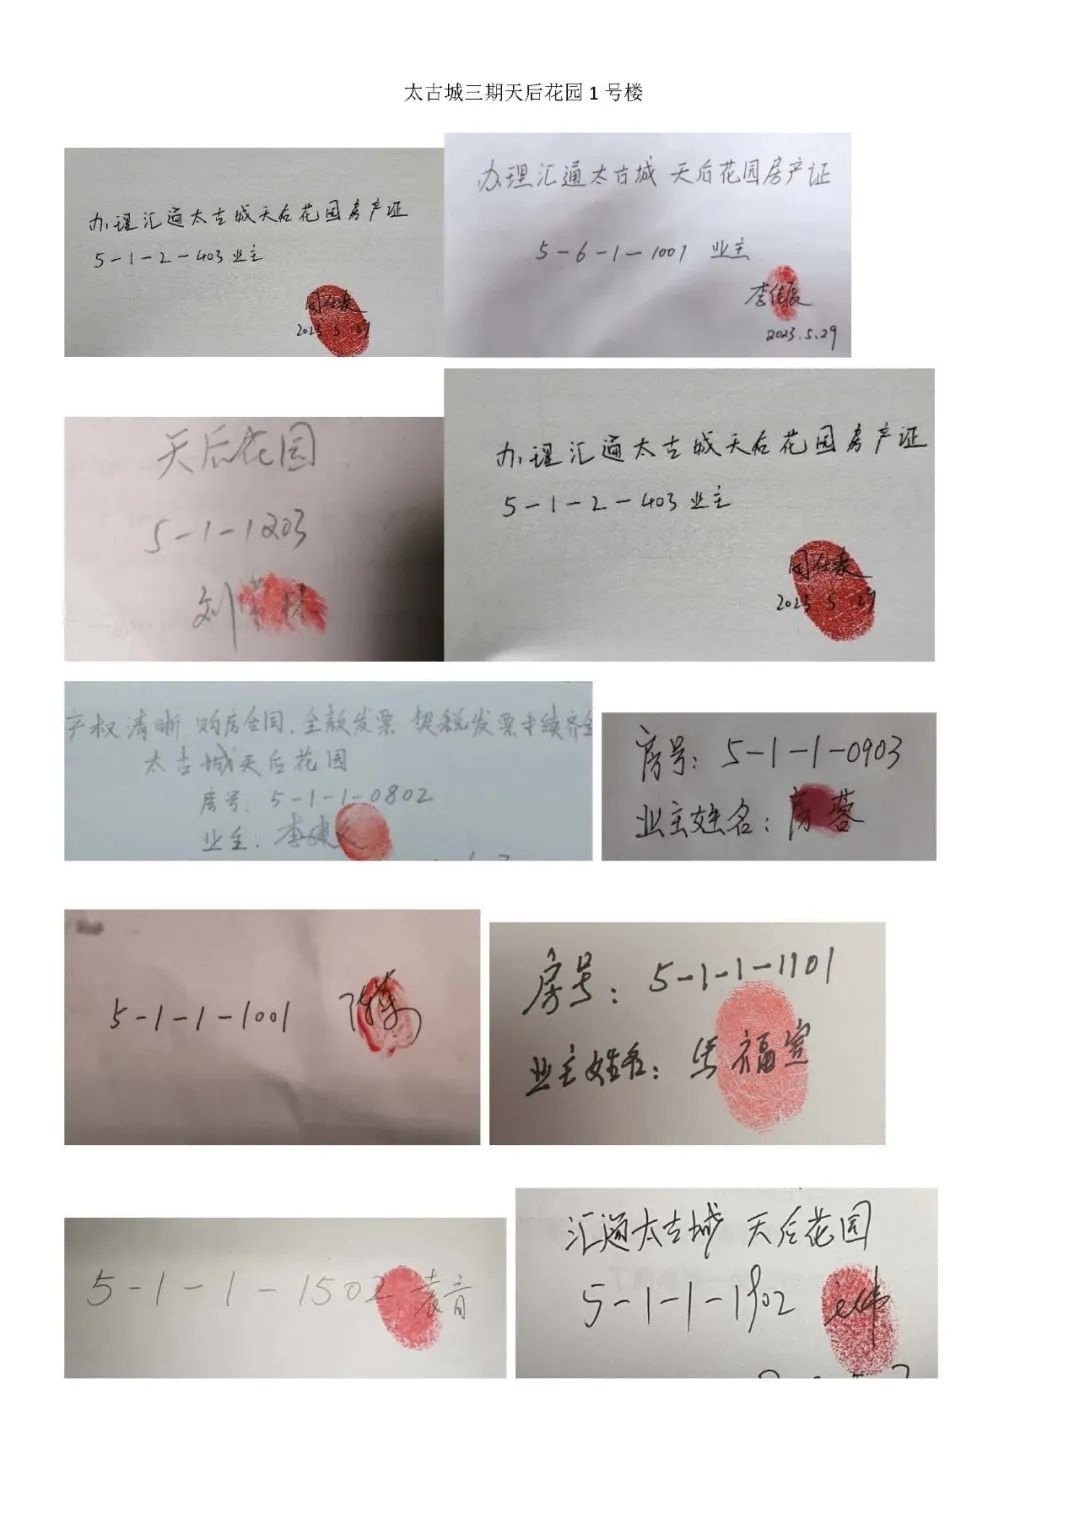 太古城三期天后花园1号楼
办理汇通太古城天后花园房产证
5-1-2-403业主
2023.5.29
办理汇通太古城 天后花园房产证
5-6-1-1001 业主
李佳辰
2023.5.29
天后花园
5-1-1203
刘
办理汇通太古城天后花园房产证
5-1-2-403业主
2023 5 29
产权清晰 购房合同、全款发票 契税发票手续齐全
太古城天后花园
房号:5-1-1-0802
业主:李建
房号:5-1-1-0903
业主姓名:房蓉
5-1-1-1001 陈
房号:5-1-1-1101
业主姓名:朱福宣
5-1-1-1502 袁音
汇通太古城 天后花园
5-1-1-1902